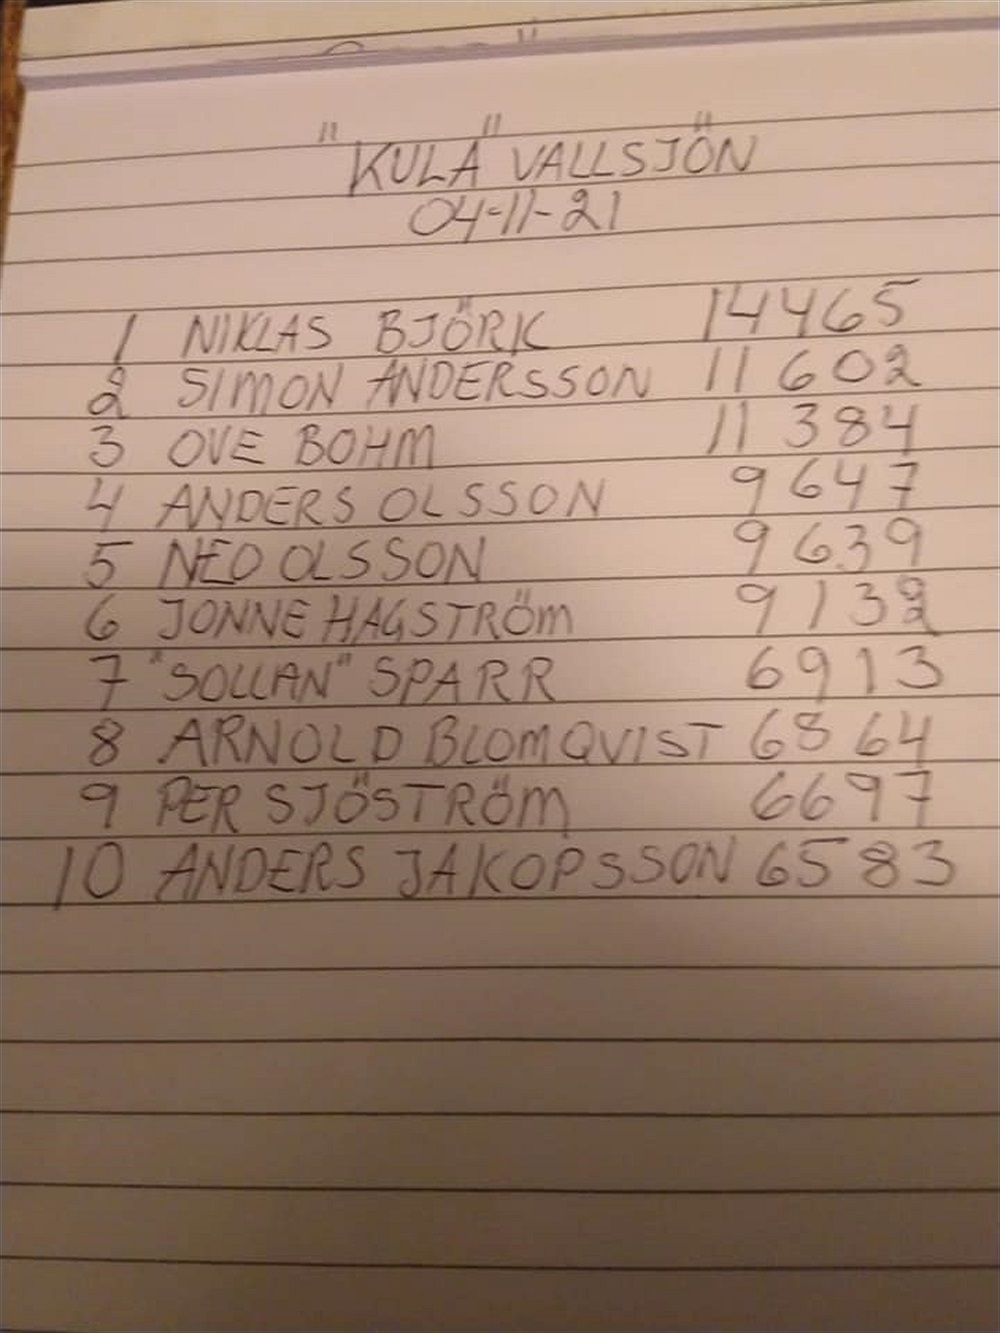 "KULA" VALLSJÖN
04-11-21
1 NIKLAS BJÖRK 14465
2 SIMON ANDERSSON 11602
3 OVE BOHM 11384
4 ANDERS OLSSON 9647
5 NEO OLSSON 9639
6 JONNE HAGSTRÖM 9132
7 "SOLLAN" SPARR 6913
8 ARNOLD BLOMQVIST 6864
9 PER SJÖSTRÖM 6697
10 ANDERS JAKOPSSON 6583